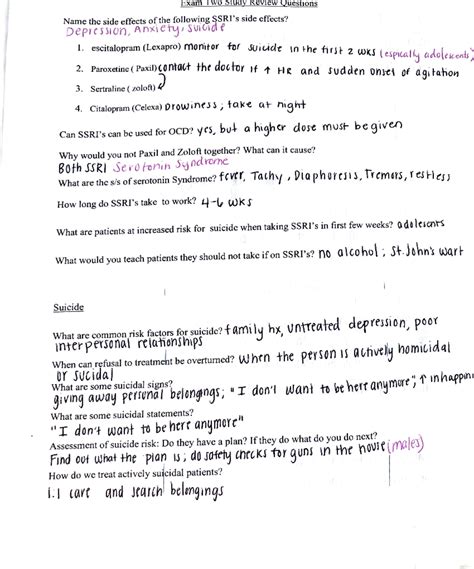 Exam Two Study Review Questions
Name the side effects of the following SSRI's side effects?
Depression, Anxiety, suicide
1. escitalopram (Lexapro) monitor for suicide in the first 2 wks (espically adolescents)
2. Paroxetine ( Paxil) contact the doctor if ↑ HR and sudden onset of agitation
3. Sertraline ( zoloft)
4. Citalopram (Celexa) Drowiness; take at night
Can SSRI's can be used for OCD? yes, but a higher dose must be given
Why would you not Paxil and Zoloft together? What can it cause?
Both SSRI Serotonin Syndrome
What are the s/s of serotonin Syndrome? fever, Tachy, Diaphoresis, Tremors, restless
How long do SSRI's take to work? 4-6 wks
What are patients at increased risk for suicide when taking SSRI's in first few weeks? adolescents
What would you teach patients they should not take if on SSRI's? no alcohol; St. John's wart
Suicide
What are common risk factors for suicide? family hx, untreated depression, poor
interpersonal relationships
When can refusal to treatment be overturned? When the person is actively homicidal
or sucidal
What are some suicidal signs?
giving away personal belongings; "I don't want to be here anymore"; ↑ in happin
What are some suicidal statements?
"I don't want to be here anymore"
Assessment of suicide risk: Do they have a plan? If they do what do you do next?
Find out what the plan is; do safety checks for guns in the house (males)
How do we treat actively suicidal patients?
1:1 care and search belongings